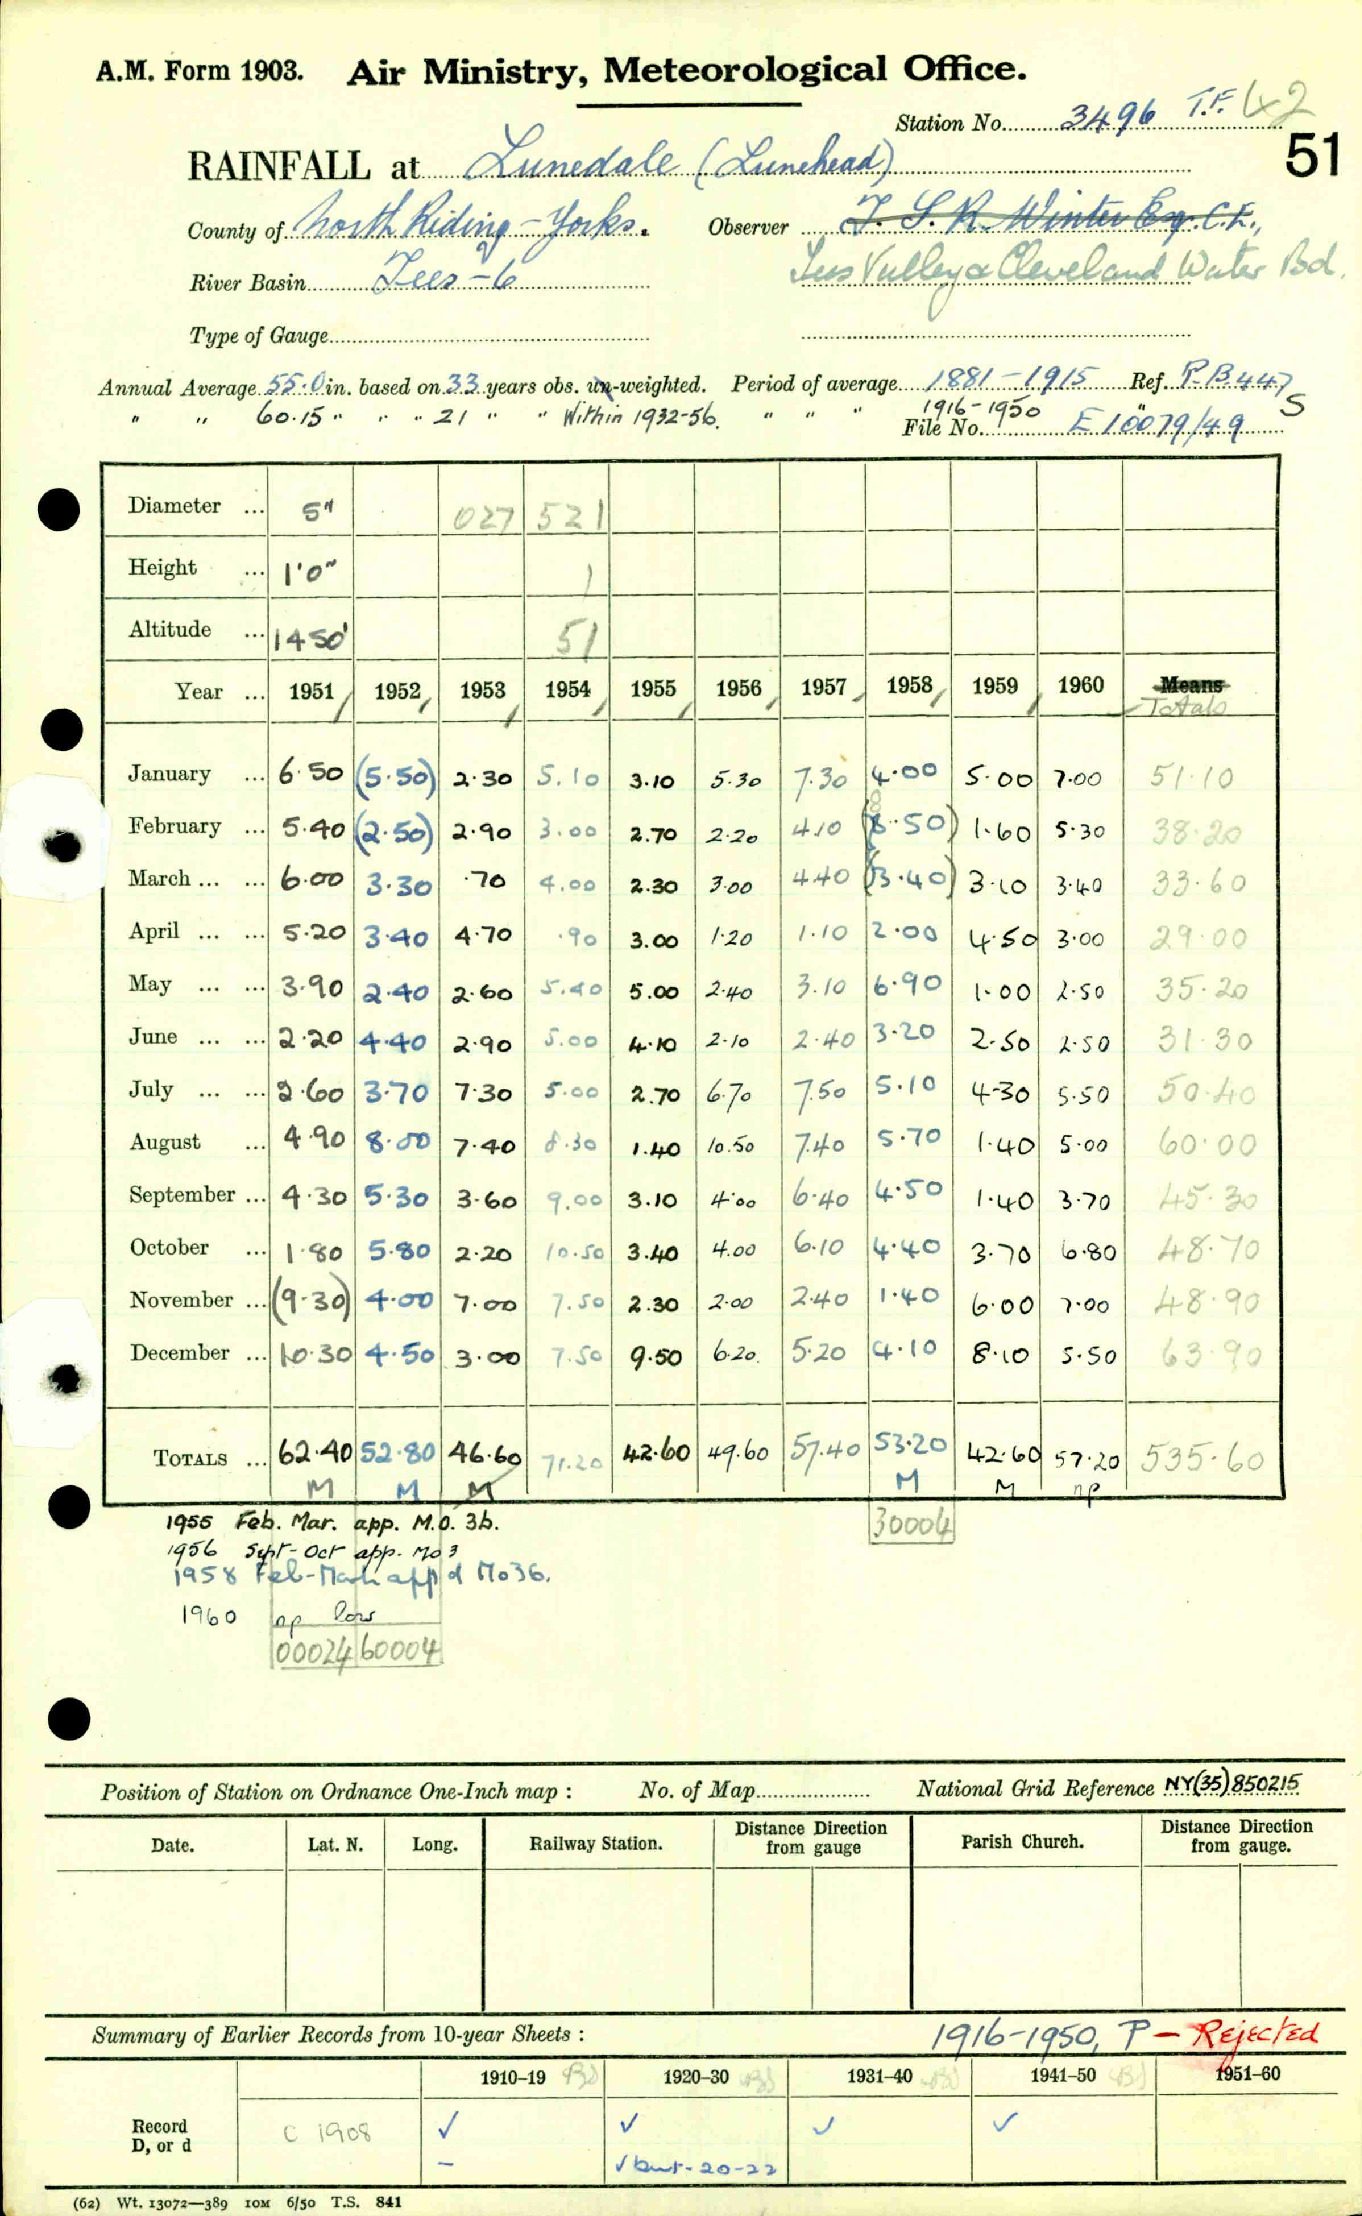 A.M. Form 1903. Air Ministry, Meteorological Office.
Station No. 3496 T.F. 42
51
RAINFALL at Lunedale (Lunehead)
County of North Riding - Yorks. Observer T. S. R. Winter Esq. C.E.,
River Basin Tees - 6 Tees Valley & Cleveland Water Bd.
Type of Gauge
Annual Average 55.0 in. based on 33 years obs. un-weighted. Period of average 1881-1915 Ref. R.B 447 S
" " 60.15 " " " 21 " " Within 1932-56. " " " 1916-1950
File No. E 10079/49
Diameter ... 5" 027 521
Height ... 1'0" 1
Altitude ... 1450' 51
Year ... 1951 1952 1953 1954 1955 1956 1957 1958 1959 1960 Means Totals
January ... 6.50 (5.50) 2.30 5.10 3.10 5.30 7.30 4.00 5.00 7.00 51.10
February ... 5.40 (2.50) 2.90 3.00 2.70 2.20 4.10 8 (8.50) 1.60 5.30 38.20
March ... ... 6.00 3.30 .70 4.00 2.30 3.00 4.40 (3.40) 3.10 3.40 33.60
April ... ... 5.20 3.40 4.70 .90 3.00 1.20 1.10 2.00 4.50 3.00 29.00
May ... ... 3.90 2.40 2.60 5.40 5.00 2.40 3.10 6.90 1.00 2.50 35.20
June ... ... 2.20 4.40 2.90 5.00 4.10 2.10 2.40 3.20 2.50 2.50 31.30
July ... ... 2.60 3.70 7.30 5.00 2.70 6.70 7.50 5.10 4.30 5.50 50.40
August ... 4.90 8.00 7.40 8.30 1.40 10.50 7.40 5.70 1.40 5.00 60.00
September ... 4.30 5.30 3.60 9.00 3.10 4.00 6.40 4.50 1.40 3.70 45.30
October ... 1.80 5.80 2.20 10.50 3.40 4.00 6.10 4.40 3.70 6.80 48.70
November ... (9.30) 4.00 7.00 7.50 2.30 2.00 2.40 1.40 6.00 7.00 48.90
December ... 10.30 4.50 3.00 7.50 9.50 6.20. 5.20 4.10 8.10 5.50 63.90
TOTALS ... 62.40 52.80 46.60 71.20 42.60 49.60 57.40 53.20 42.60 57.20 535.60
M M M M M np
1955 Feb. Mar. app. M.O. 3b. 30004
1956 Sept-Oct app. Mo3
1958 Feb-March app'd Mo3b.
1960 np low
00024 60004
Position of Station on Ordnance One-Inch map : No. of Map National Grid Reference NY(35)850215
Date. Lat. N. Long. Railway Station. Distance Direction from gauge Parish Church. Distance Direction from gauge.
Summary of Earlier Records from 10-year Sheets : 1916-1950, P - Rejected
1910-19 1920-30 1931-40 1941-50 1951-60
Record D, or d C 1908 ✓ ✓ ✓ ✓
- ✓ but - 20-22
(62) Wt. 13072—389 10M 6/50 T.S. 841